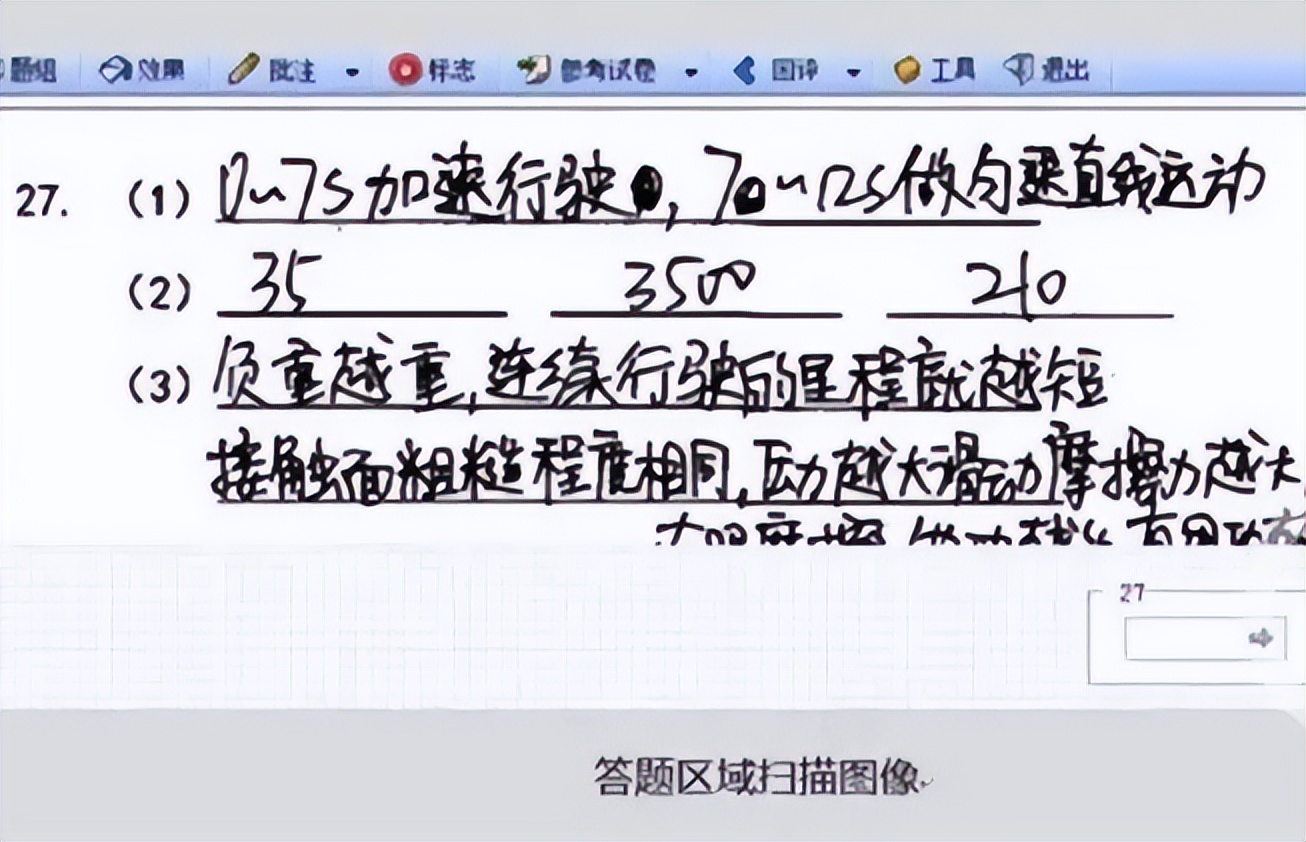 题组 效果 批注 标志 参考试卷 回评 工具 退出
27. (1) 0~7s加速行驶, 7~12s做匀速直线运动
(2) 35 3500 210
(3) 负重越重,连续行驶的里程就越短
接触面粗糙程度相同,压力越大滑动摩擦力越大
27
答题区域扫描图像